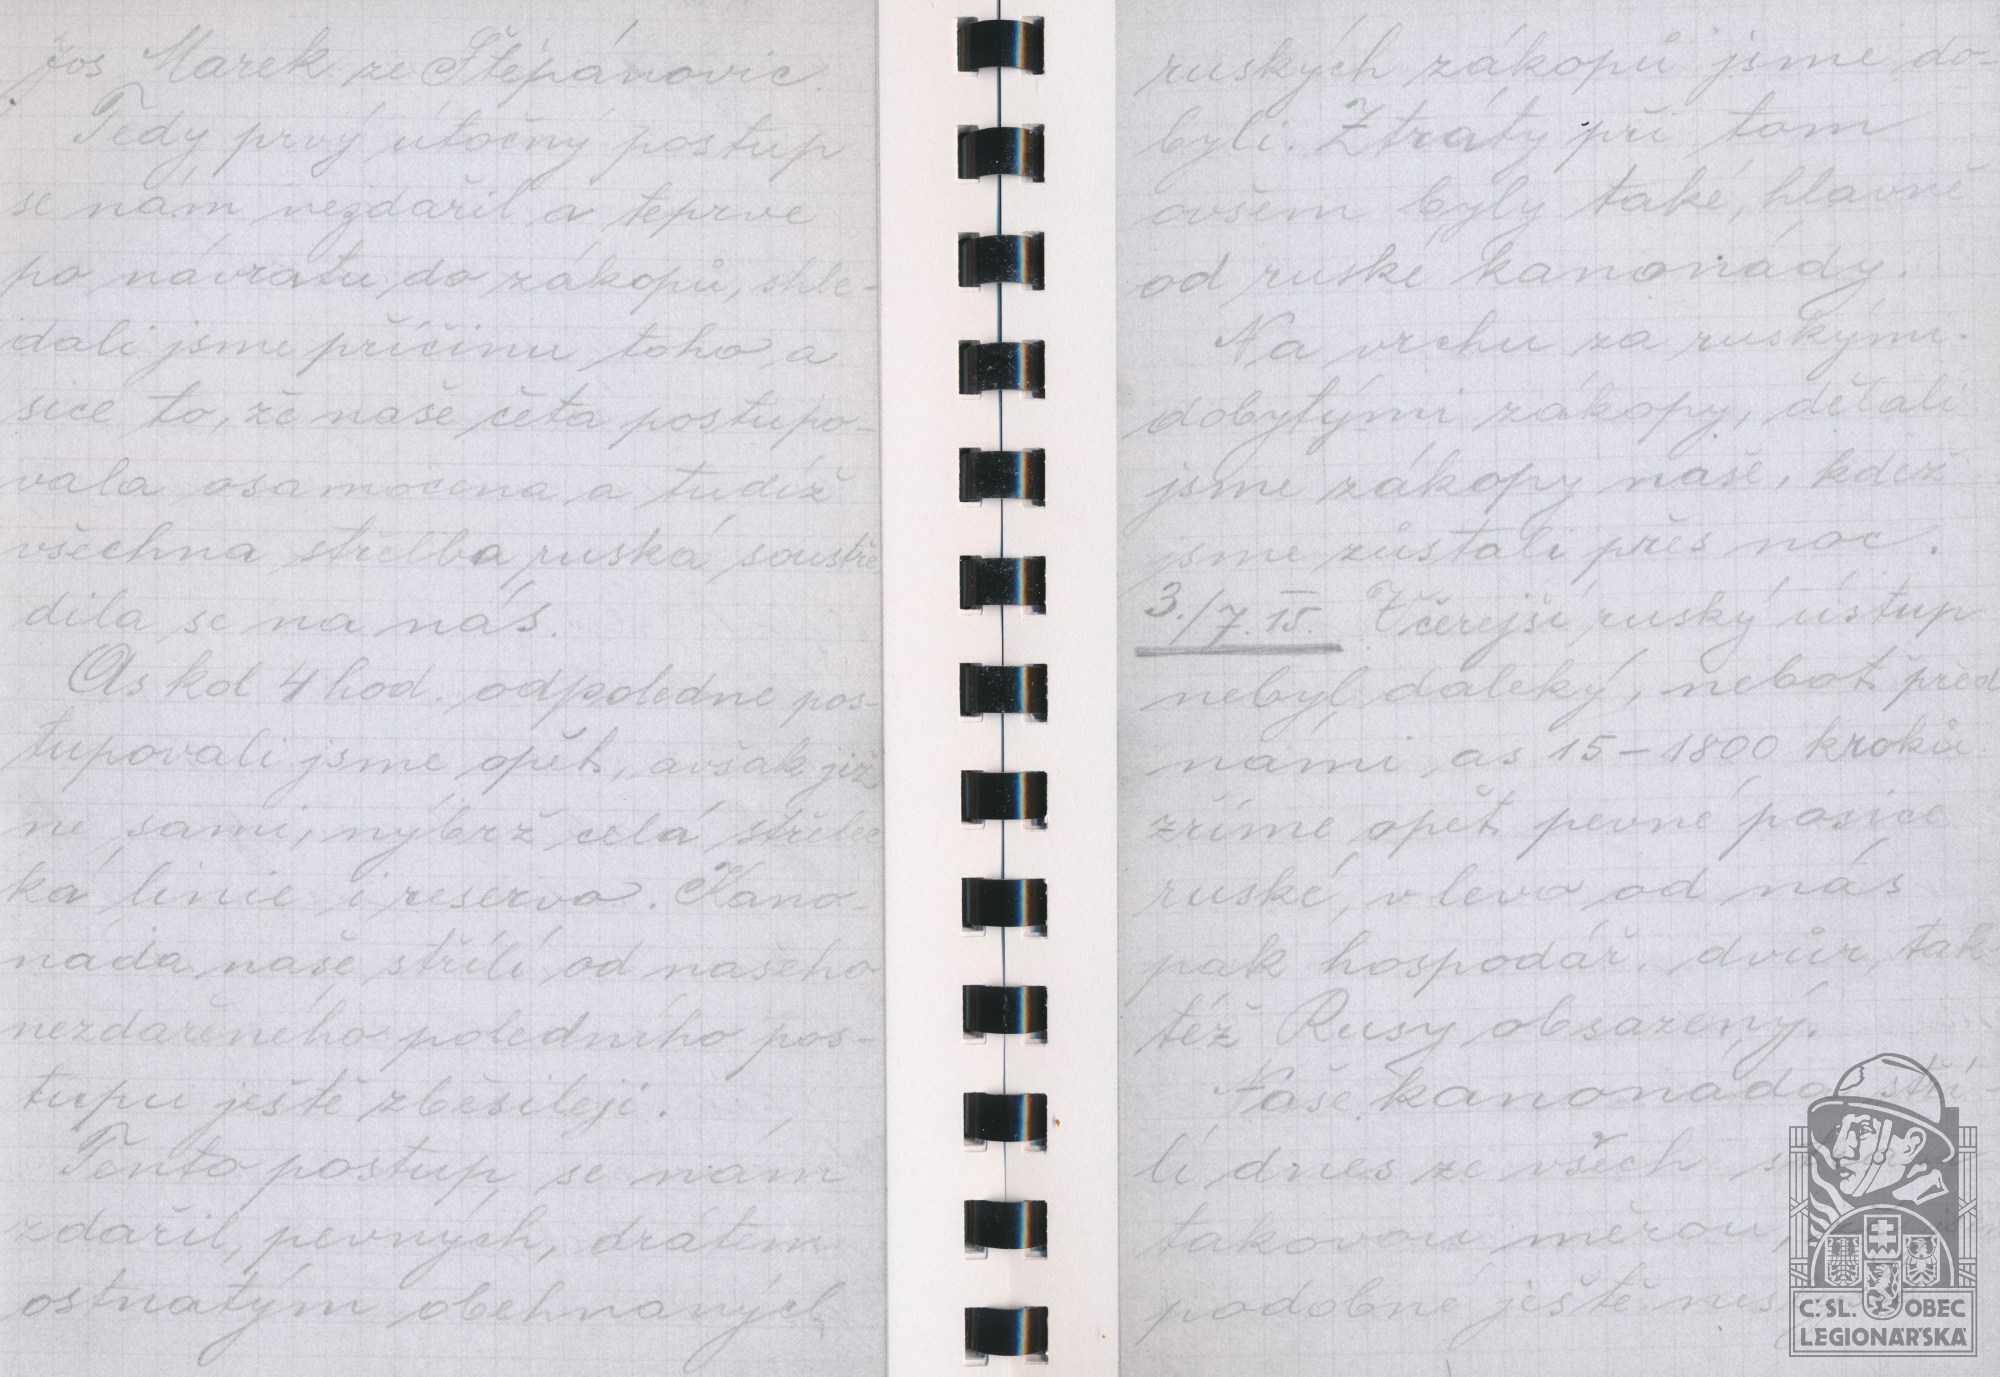 Jos Marek ze Štěpánovic.
Tedy prvý útočný postup
se nám nezdařil a teprve
po návratu do zákopů, shle-
dali jsme příčinu toho, a
sice to, že naše četa postupo-
vala osamocena a tudíž
všechna střelba ruská soustře
dila se na nás.
As kol 4 hod. odpoledne pos-
tupovali jsme opět, avšak již
ne sami, nýbrž celá střelec
ká linie i reserva. Kano-
náda naše střílí od našeho
nezdařeného poledního pos-
tupu ještě zběsileji.
Tento postup se nám
zdařil, pevných, drátem
ostnatým obehnaných
ruských zákopů jsme do-
byli. Ztráty při tom
ovšem byly také, hlavně
od ruské kanonády.
Na vrchu za ruskými
dobytými zákopy, dělali
jsme zákopy naše, kdež
jsme zůstali přes noc.
3./7.15. Včerejší ruský ústup
nebyl daleký, neboť před
námi as 15-1800 kroků
zříme opět pevné posice
ruské, v levo od nás
pak hospodář. dvůr, tak
též Rusy obsazený.
Naše kanonáda stří-
lí dnes ze všech
takovou měrou,
podobně ještě
Č.SL. OBEC
LEGIONÁŘSKÁ